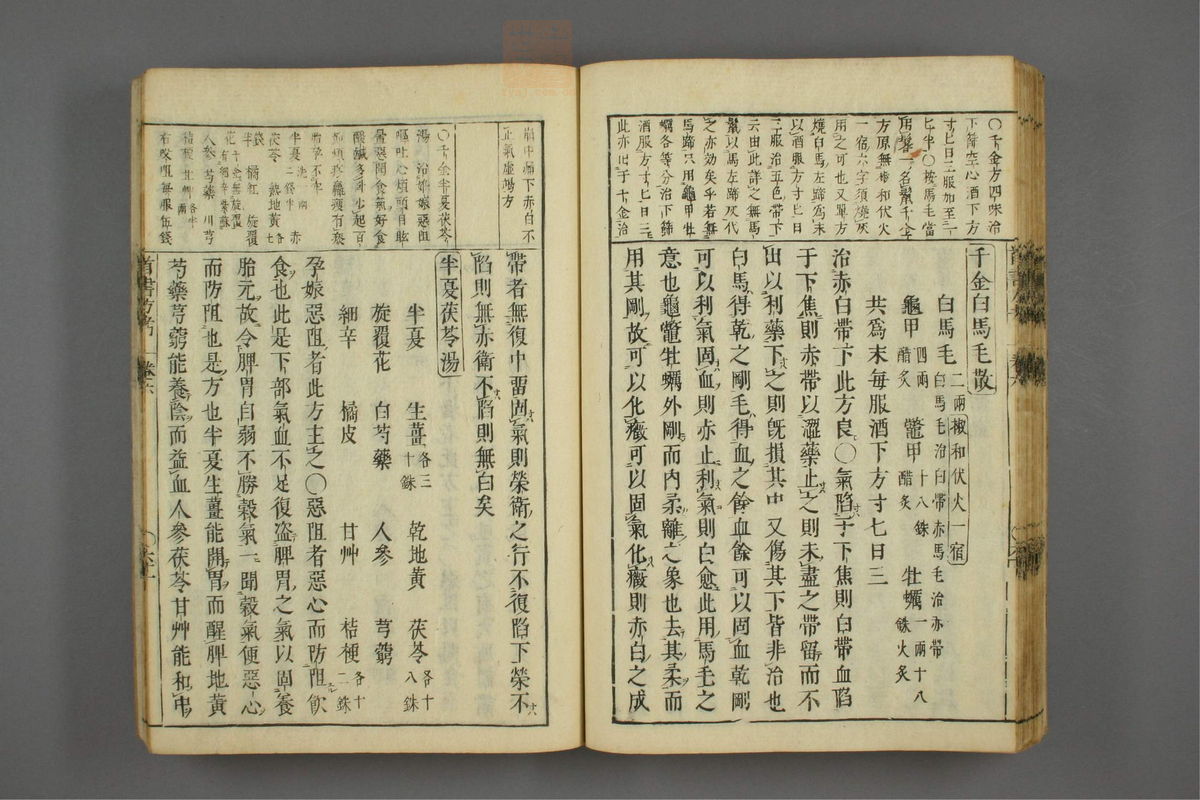 〇千金方四味治
下筛空心酒下方
寸匕日三服加至一
匕半〇按馬毛當
方原無椒和伏火
一宿六字須燒灰
用之可也又單方
燒白馬左蹄爲末
以酒服方寸匕日
三服治五色帶下
云由此詳之無馬
鬣以馬左蹄灰代
之亦効矣乎若無
馬蹄只用龜甲牡
蠣各等分治下篩
酒服方寸匕日三
此亦出于千金治
千金白馬毛散
白馬毛二兩椒和伏火一宿
白馬毛治白帶赤馬毛治赤帶
龜甲四兩醋炙 鼈甲十八銖醋炙 牡蠣一兩十八銖火炙
共爲末每服酒下方寸七日三
治赤白帶下此方良〇氣陷于下焦則白帶血陷
于下焦則赤帶以澀藥止之則未盡之帶留而不
出以利藥下之則既損其中又傷其下皆非治也
白馬得乾之剛毛得血之餘血餘可以固血乾剛
可以利氣固血則赤止利氣則白愈此用馬毛之
意也龜鼈牡蠣外剛而内柔離之象也去其柔而
用其剛故可以化癥可以固氣化癥則赤白之成
崩中漏下赤白不
止氣虚竭方
〇千金半夏茯苓
湯 治婦娠惡阻
嘔吐心煩頭目眩
帶者無復中畱固氣則榮衛之行不復陷下榮不
陷則無赤衛不陷則無白矣
半夏茯苓湯
半夏 生薑各三十銖 乾地黃 茯苓各十八銖
旋覆花 白芍藥 人參 芎藭
細辛 橘皮 甘艸 桔梗各十二銖
孕娠惡阻者此方主之〇惡阻者惡心而防阻飲
食也此是下部氣血不足復盗脾胃之氣以固養
胎元故令脾胃自弱不勝穀氣一聞穀氣便惡心
而防阻也是方也半夏生薑能開胃而醒脾地黃
芍藥芎藭能養陰而益血人參茯苓甘艸能和中